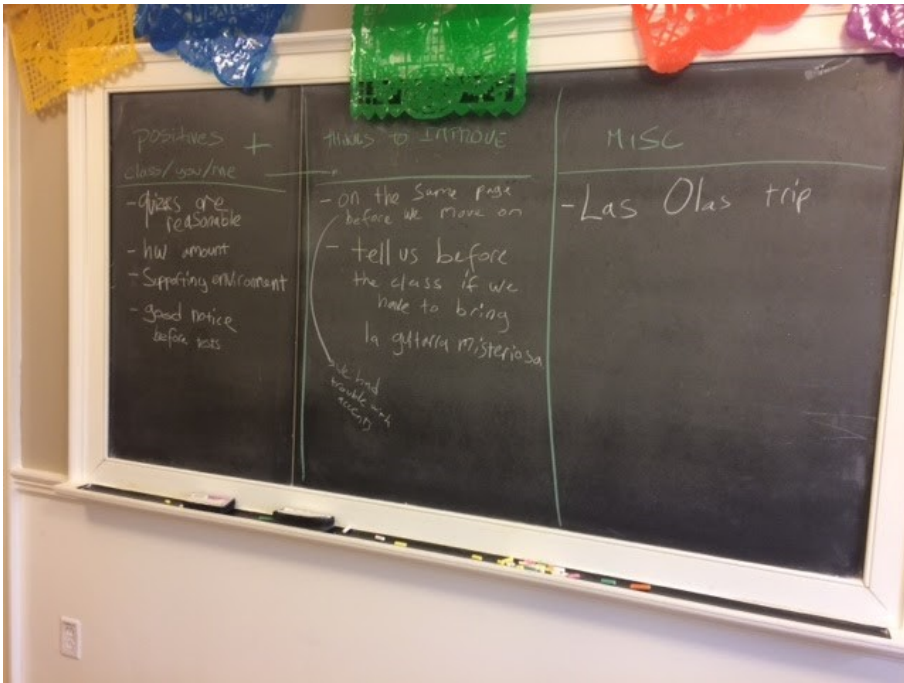 positives +
class/you/me
- quizes are
reasonable
- hw amount
- Supporting environment
- good notice
before
THINGS TO IMPROVE
- on the same page
before we move on
- tell us before
the class if we
have to bring
la guitarra misteriosa
we had
trouble with
accents
MISC
- Las Olas trip